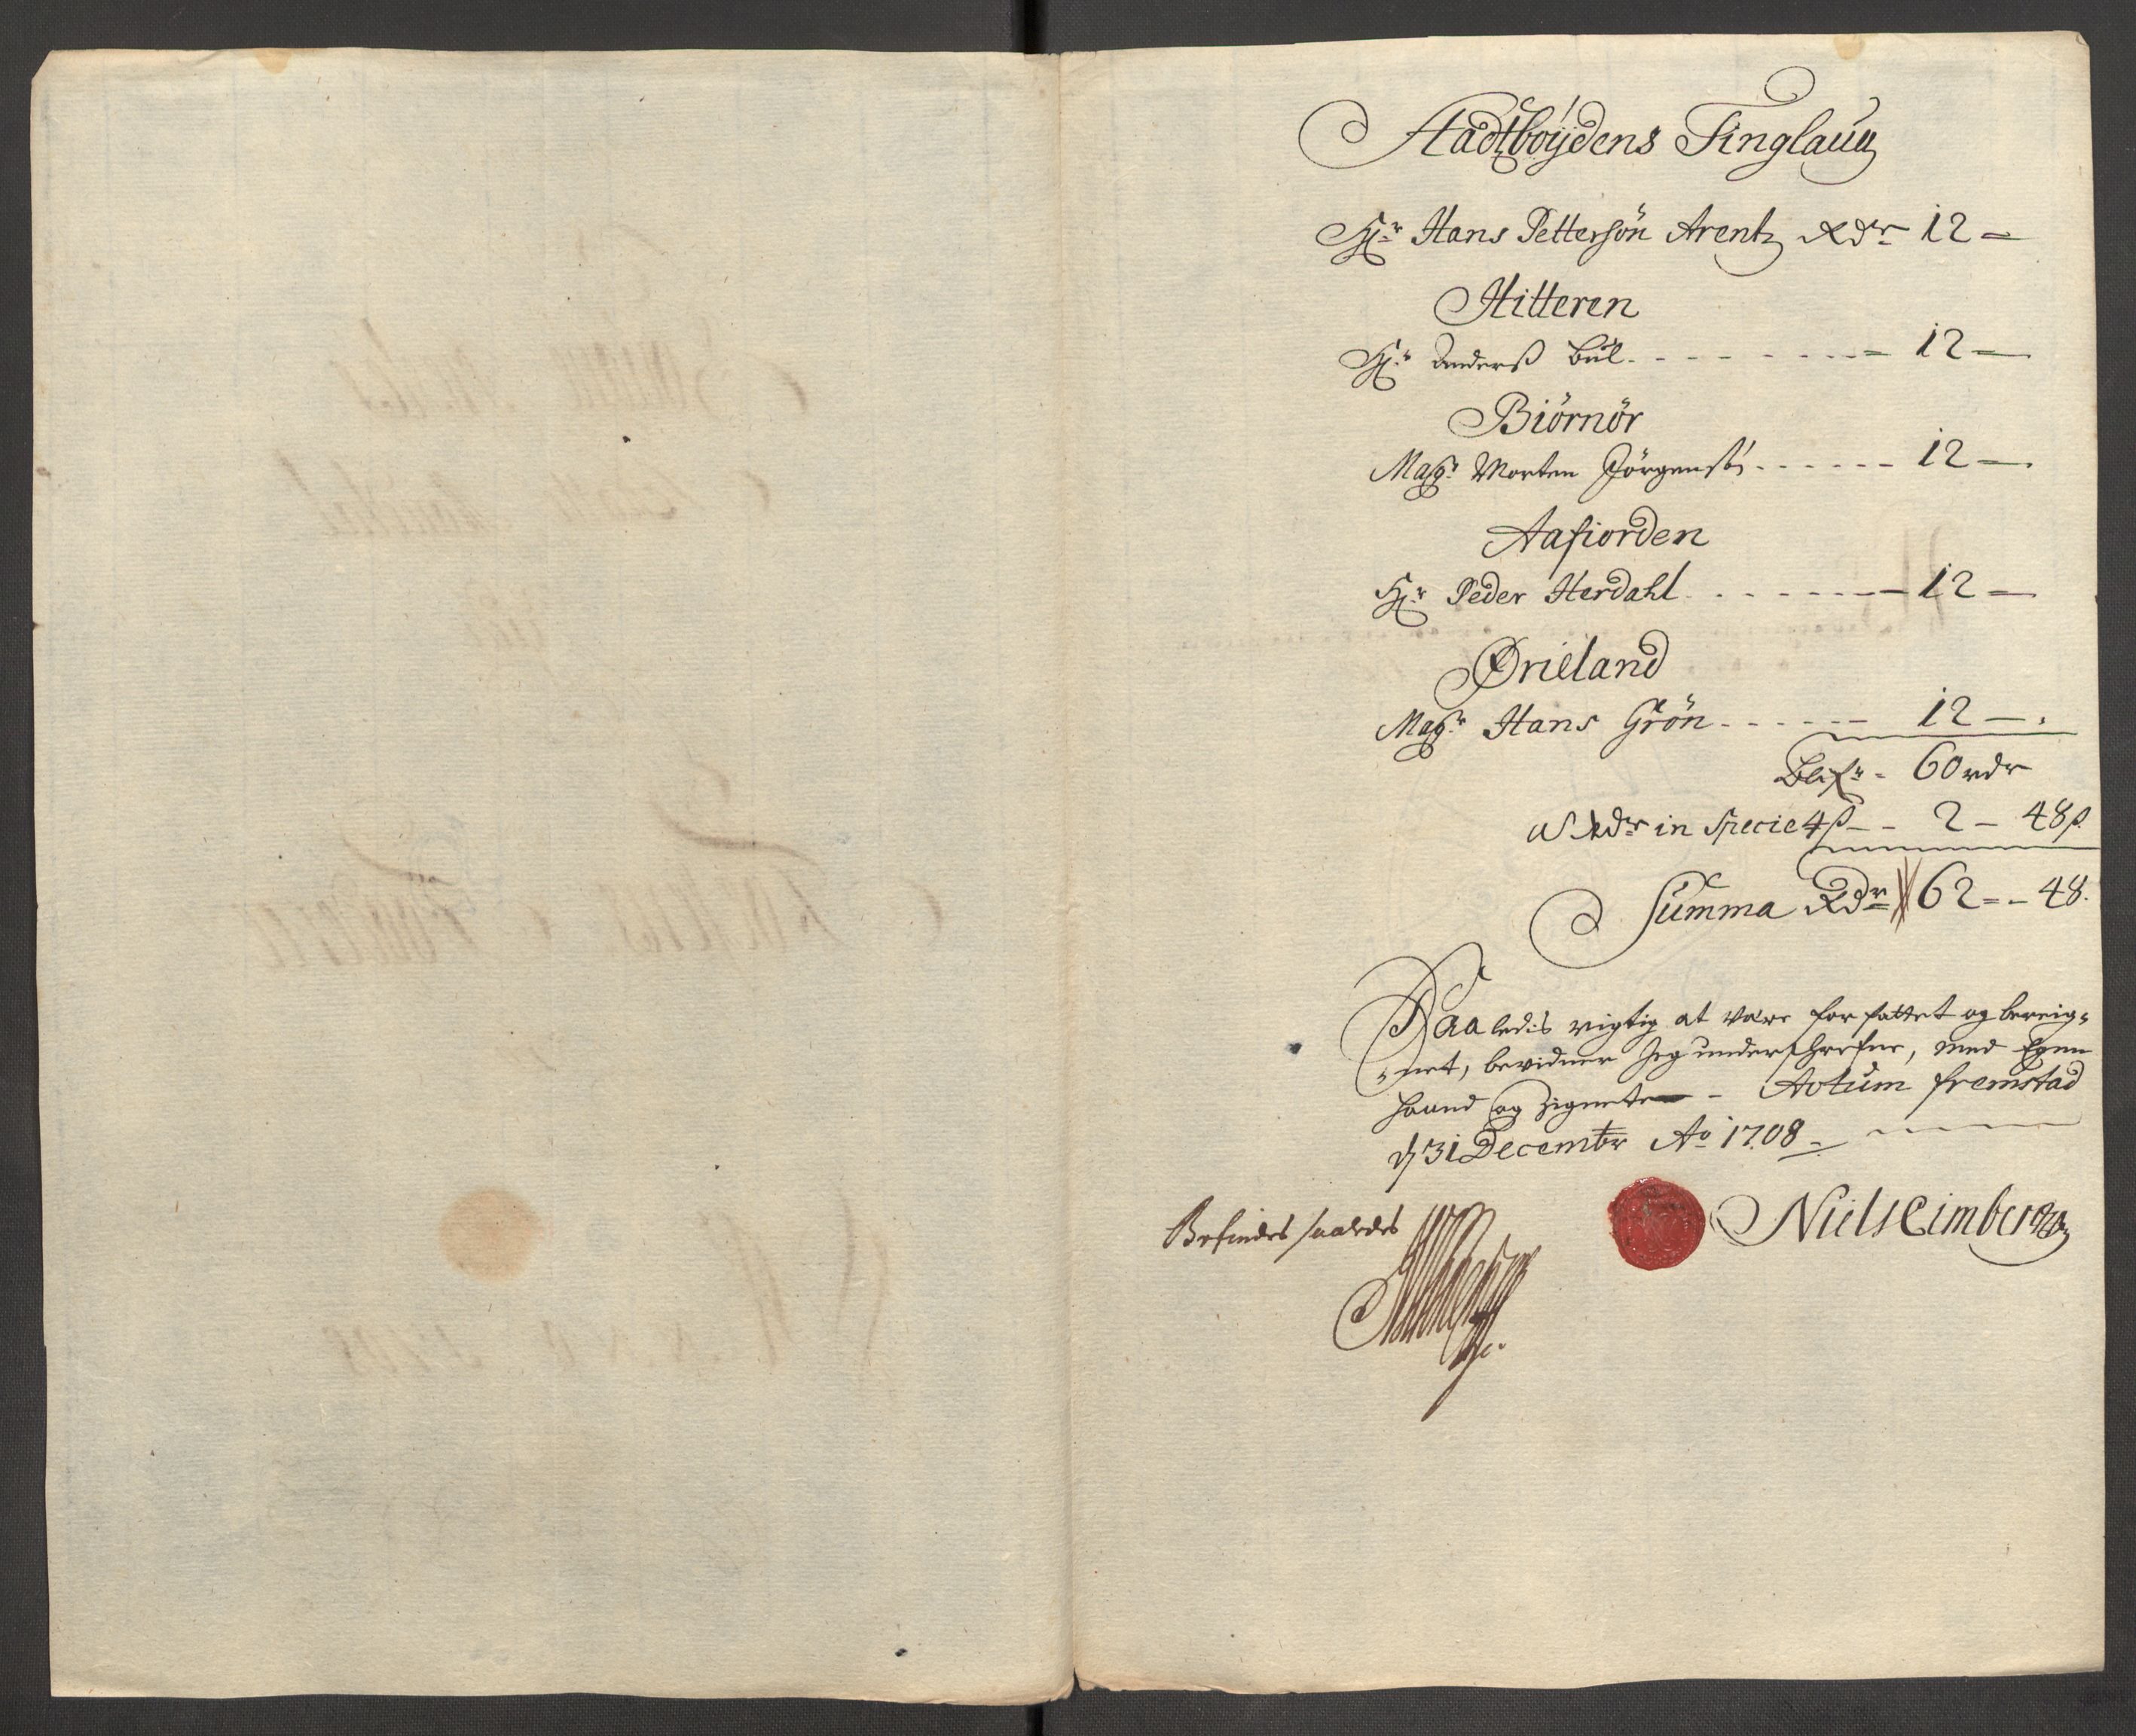 Stadtboÿdens Tinglaug
Hr: Hans Pettersøn Arentz Rdr 12 –
Hitteren
Hr: Anderss Bul - - - - - - 12 –
Biørnør
Magr: Morten Jørgenss: - - - - - - 12 –
Aafiorden
Hr: Peder Herdahl - - - - - - 12 –
Ørieland
Magr: Hans Grøn - - - - - - 12 –
60 rdr
a Rdr in Specie 4 ß - - 2 – 48 ß
Summa Rdr 62 = – 48.
Saaledis rigtig at være forfattet og bereig-
net, bevidner Jeg underschrefne, med Egen
haand og Zignete - Actum fremstad
d 31 Decembr Ao 1708 -
Befindes saaledes
Niels Cimber